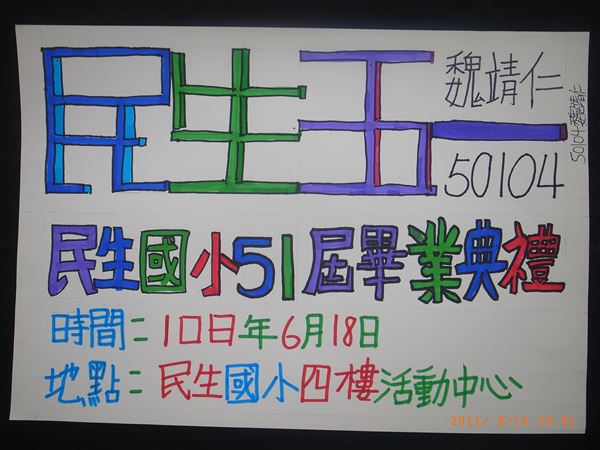 民生五一
魏靖仁
50104
50104魏靖仁
民生國小51屆畢業典禮
時間:1口日年6月18日
地點:民生國小四樓活動中心
2011/